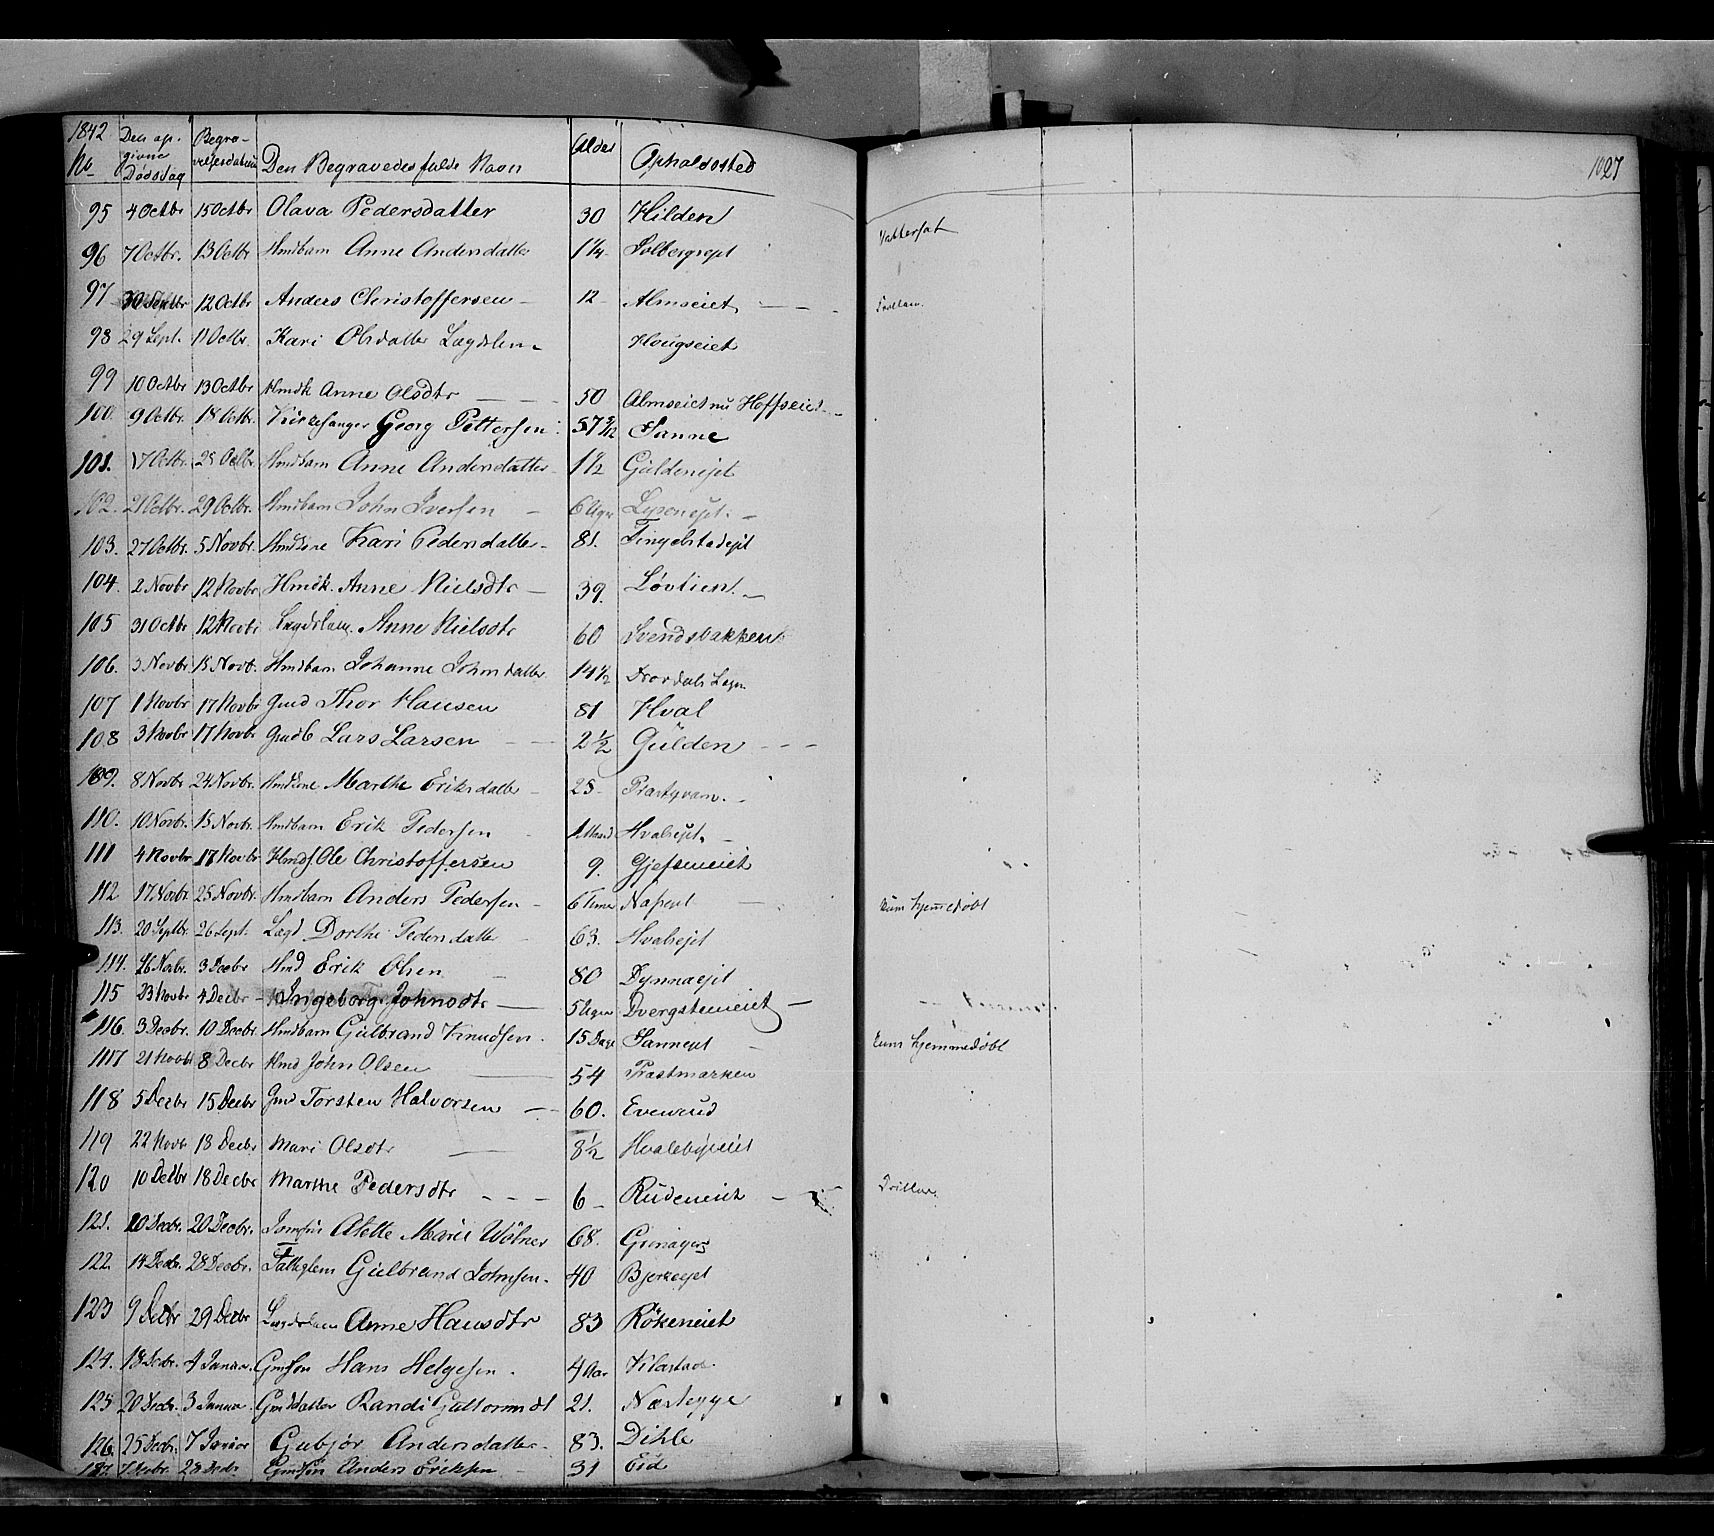 1842
No
Den op-
givne
Dødsdag
Begra-
velsesdatum
Den Begravedes fulde Navn
Alder
Opholdssted
1027
95 4 Octbr 15 Octbr Olava Pedersdatter 30 Hilden
96 7 Octbr. 13 Octbr Hmdbarn Anne Andersdatter 1¼ Solbergsejet
97 30 Septbr 12 Octbr Anders Christoffersen - 12 - Almseiet
98 29 Sept. 11 Octbr. Kari Olsdatter Lægdslem Hougseiet
99 10 Octbr 13 Octbr Hmdk Anne Olsdtr 50 Almseiet nu Hoffseiet
100 9 Octbr. 18 Octbr. Kirkesanger Georg Pettersen 57 Sanne
101. 17 Octbr. 25 Octbr. Hmdbarn Anne Andersdatter 1½ Guldenejet
102. 21 Octbr. 29 Octbr. Hmdbarn John Iversen - 6 Uger
103. 27 Octbr. 5 Novbr. Hmdene Kari Pedersdatter - 81. Tingelstadejet
104. 2 Novbr 12 Novbr Hmdk. Anne Nielsdtr 39. Løvlien
105 31 Octbr 12 Novbr Lægdslem. Anne Nielsdtr 60 Svendsbakken
106. 5 Novbr 15 Novb. Hmdbarn Johanne Johnsdatter 14½
107 1 Novbr 17 Novbr Gmd Thor Hansen 81 Hval
108 3 Novbr 17 Novbr Gmdb Lars Larsen 2½ Gülden
109. 8 Novbr 24 Novbr. Hmdene Marthe Eriksdatter 25 - Præstqværn
110. 10 Novbr. 15 Novbr. Hmdbarn Erik Pedersen 1 Maand Hvalsejet
111 4 Novbr 17 Novbr Hmds Ole Christoffersen 9. Gjefseneiet
112 17 Novbr. 25 Novbr. Hmdbarn Anders Pedersen - 6 Timer
Kun hjemmedøbt
113. 20 Septbr. 26 Sept. Lægd Dorthe Pedersdatter 63. Hvalsejet
114. 26 Novbr. 3 Decbr Hmd Erik Olsen 80 Dynnaejet
115 23 Novbr 4 Decbr - Ingeborg Johnsdtr 5 Uger Dvergsteneiet
116. 3 Decbr. 10 Decbr Hmdbarn Gulbrand Knudsen. 15 Dage Sannejet
Kun hjemmedøbt
117 21 Novbr 8 Decbr Hmd John Olsen 54 Præstmarken
118 5 Decbr 15 Decbr Gmd Torsten Halvorsen 60. Evenrud
119 22 Novbr 18 Decbr Mari Olsdtr 8½ Hvalebyeiet
120 10 Decbr 18 Decbr Marthe Pedersdtr 6 - Rüdeneiet
121. 10 Decbr. 20 Decbr. Jomfru Alette Marie Wölner 68. Grinager
122. 14 Decbr. 28 Decbr. Fattiglem Gulbrand Johnsen. 40 Bjerkeejet
123 9 Decbr 29 Decbr Lægdslem Anne Hansdtr 83 Rökeneiet
124. 18 Decbr. 4 Januar. Gmsøn Hans Helgesen. 4 Aar Kilestad
125 20 Decbr. 3 Januar. Gmddatter Randi Guttormsdt 21. Næsteyge
126. 25 Decbr. 7 Januar Gubjør Andersdatter. 83. Dihle
127. 28 Decbr. Gmdsøn Anders Eriksen 31 Eid